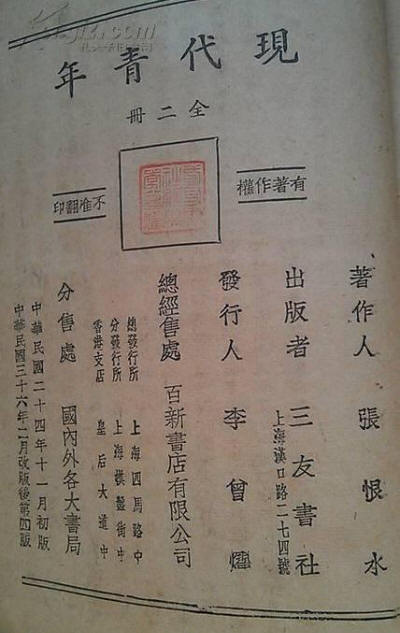 現代青年
全二冊
有著作權
不准翻印
著作人 張恨水
出版者 三友書社
上海漢口路二七四號
發行人 李曾耀
總經售處 百新書店有限公司
總發行所 上海四馬路中
分發行所 上海棋盤街中
香港支店 皇后大道中
分售處 國內外各大書局
中華民國二十四年十一月初版
中華民國三十六年二月改版後第四版